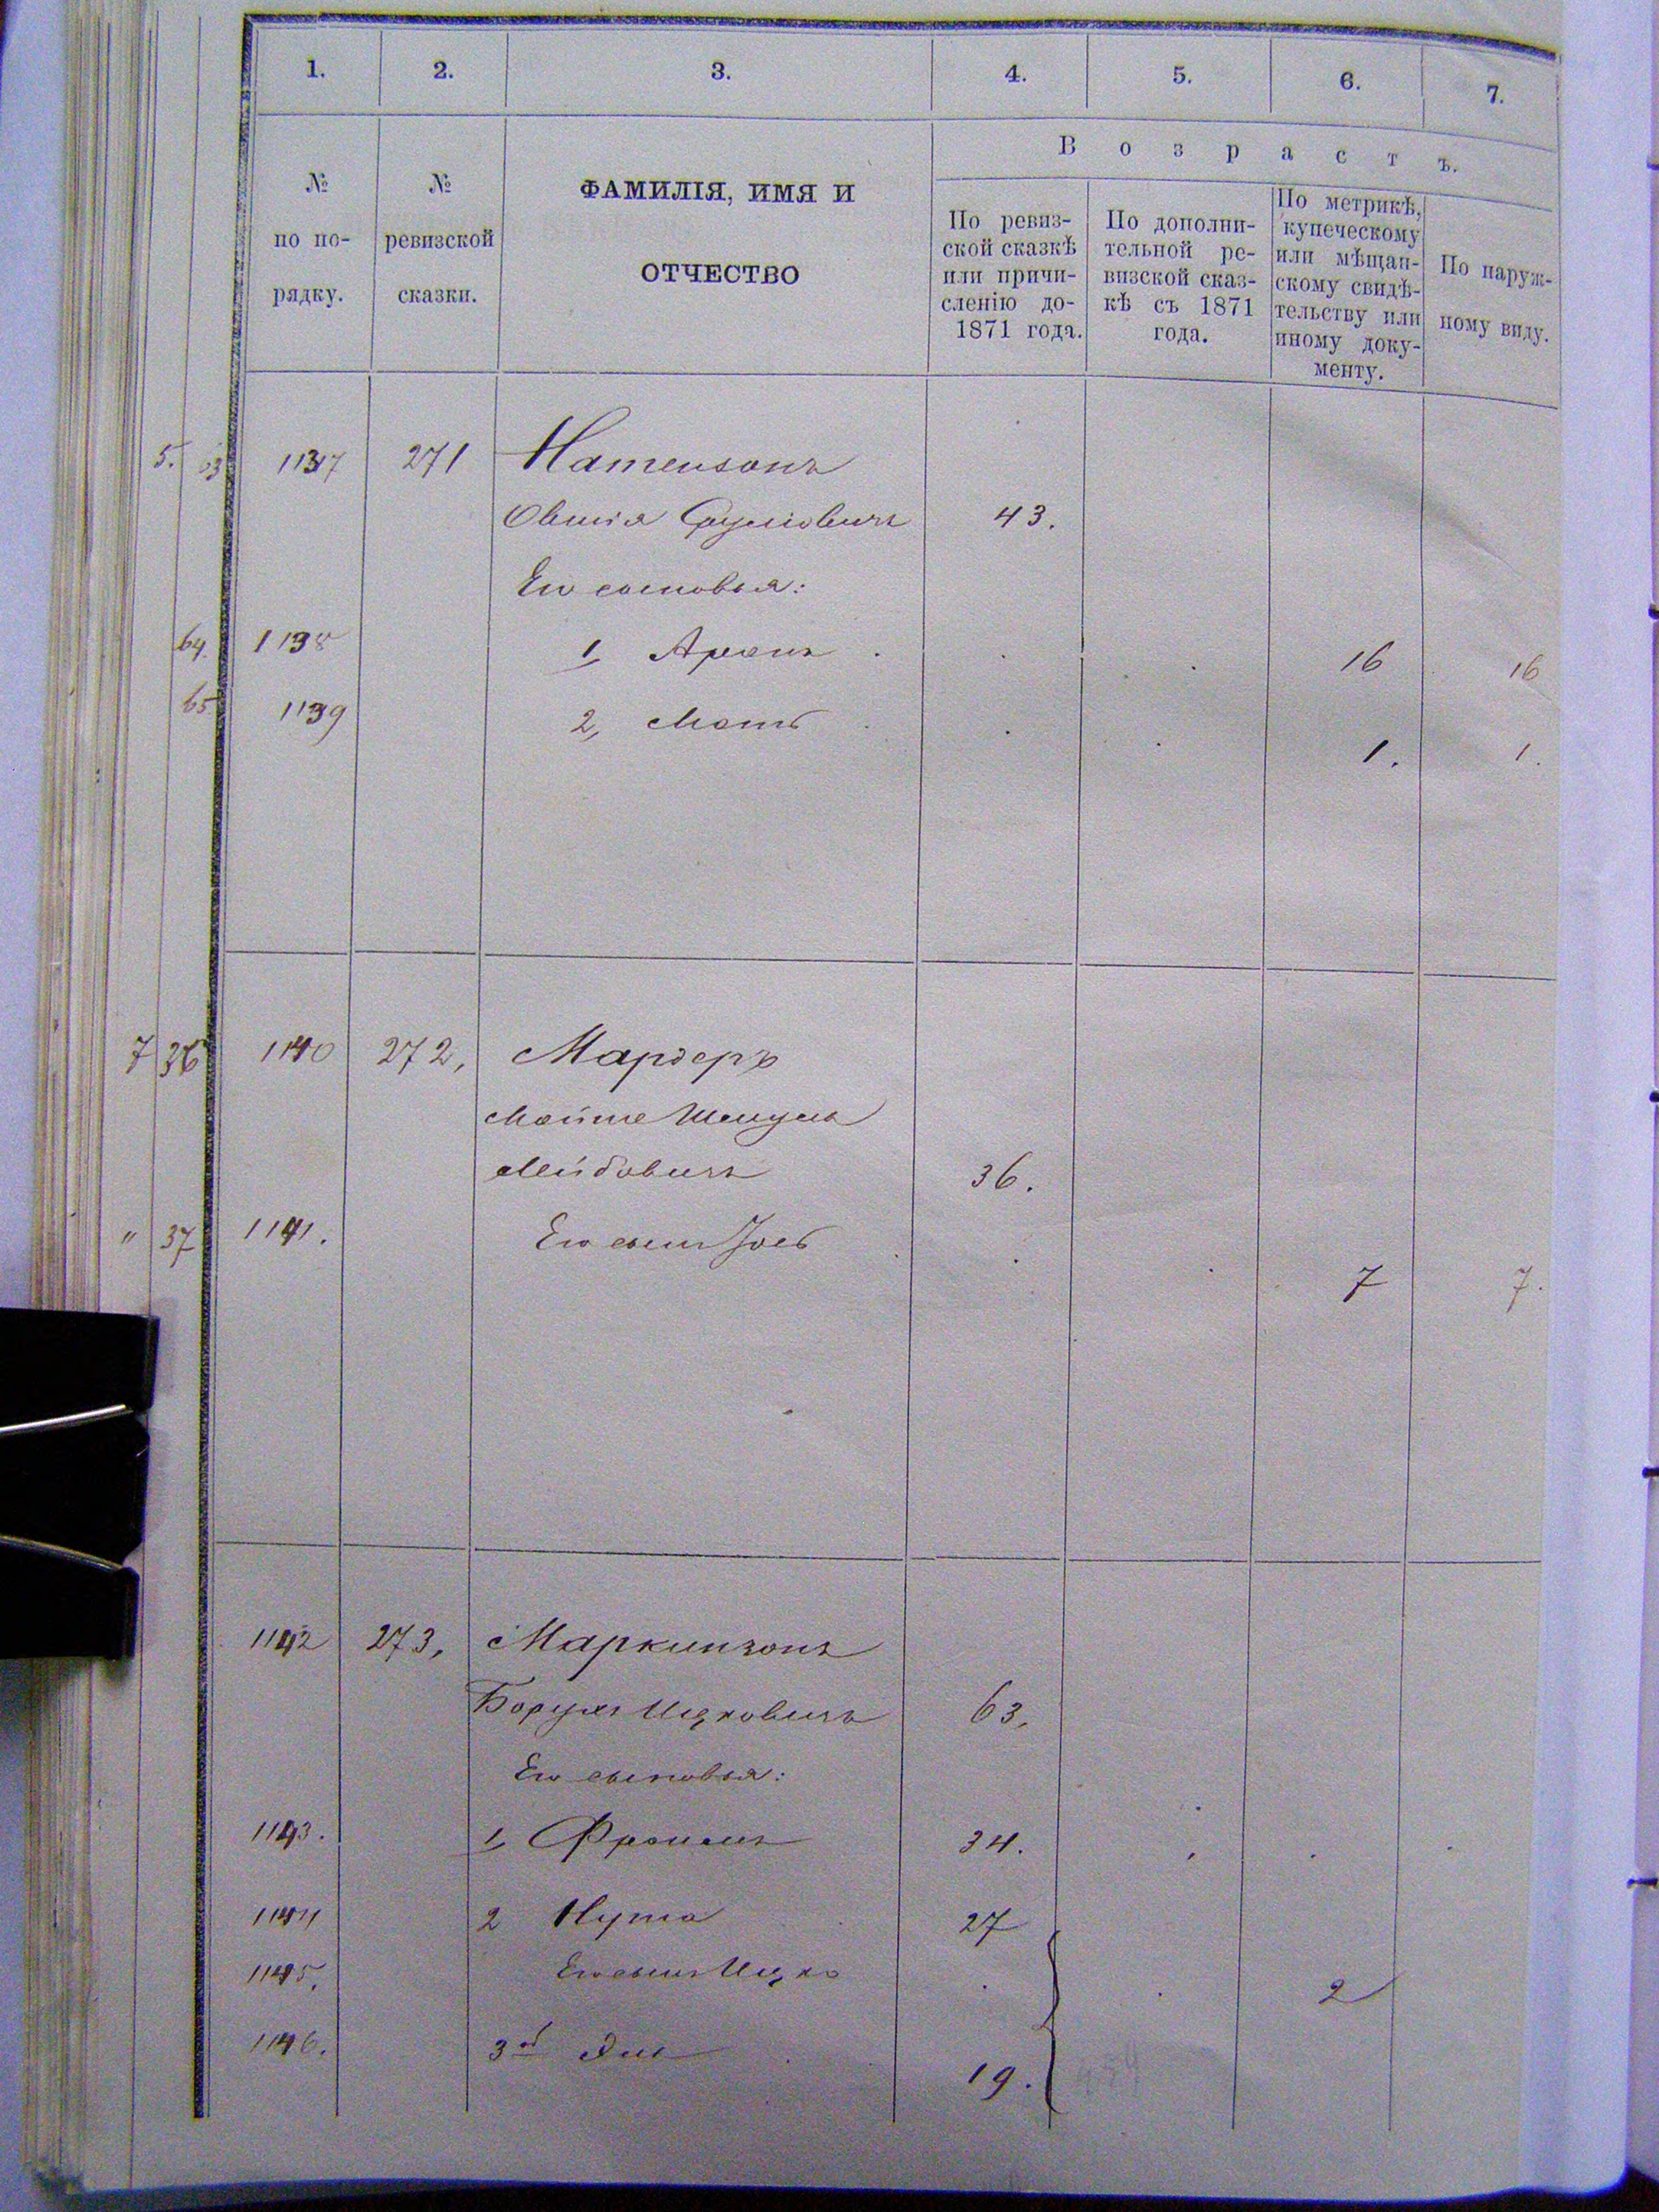 1. 2. 3. 4. 5. 6. 7.
№ по порядку.
№ ревизской сказки.
ФАМИЛІЯ, ИМЯ И
ОТЧЕСТВО
Возрастъ.
По ревиз-
ской сказкѣ
или причи-
сленію до-
1871 года.
По дополни-
тельной ре-
визской сказ-
кѣ съ 1871
года.
По метрикѣ,
купеческому
или мѣщан-
скому свидѣ-
тельству или
иному доку-
менту.
По наруж-
ному виду.
5. 63 1137 271 Натензонъ
Овшія Сруліовичъ 43.
Его сыновья:
64. 1138 1, Аронъ 16 16
65 1139 2, 1. 1.
7 36 1140 272, Мардеръ
Мойше Шмуль
Лейбовичъ 36.
" 37 1141. Его сынъ Іось 7 7.
1142 273, Маркинзонъ
Борухъ Ицковичъ 63,
Его сыновья:
1143. 1, Фроимъ 34.
1144 2 Нута 27
1145. Его сынъ Ицко 2
1146. 3й 19.